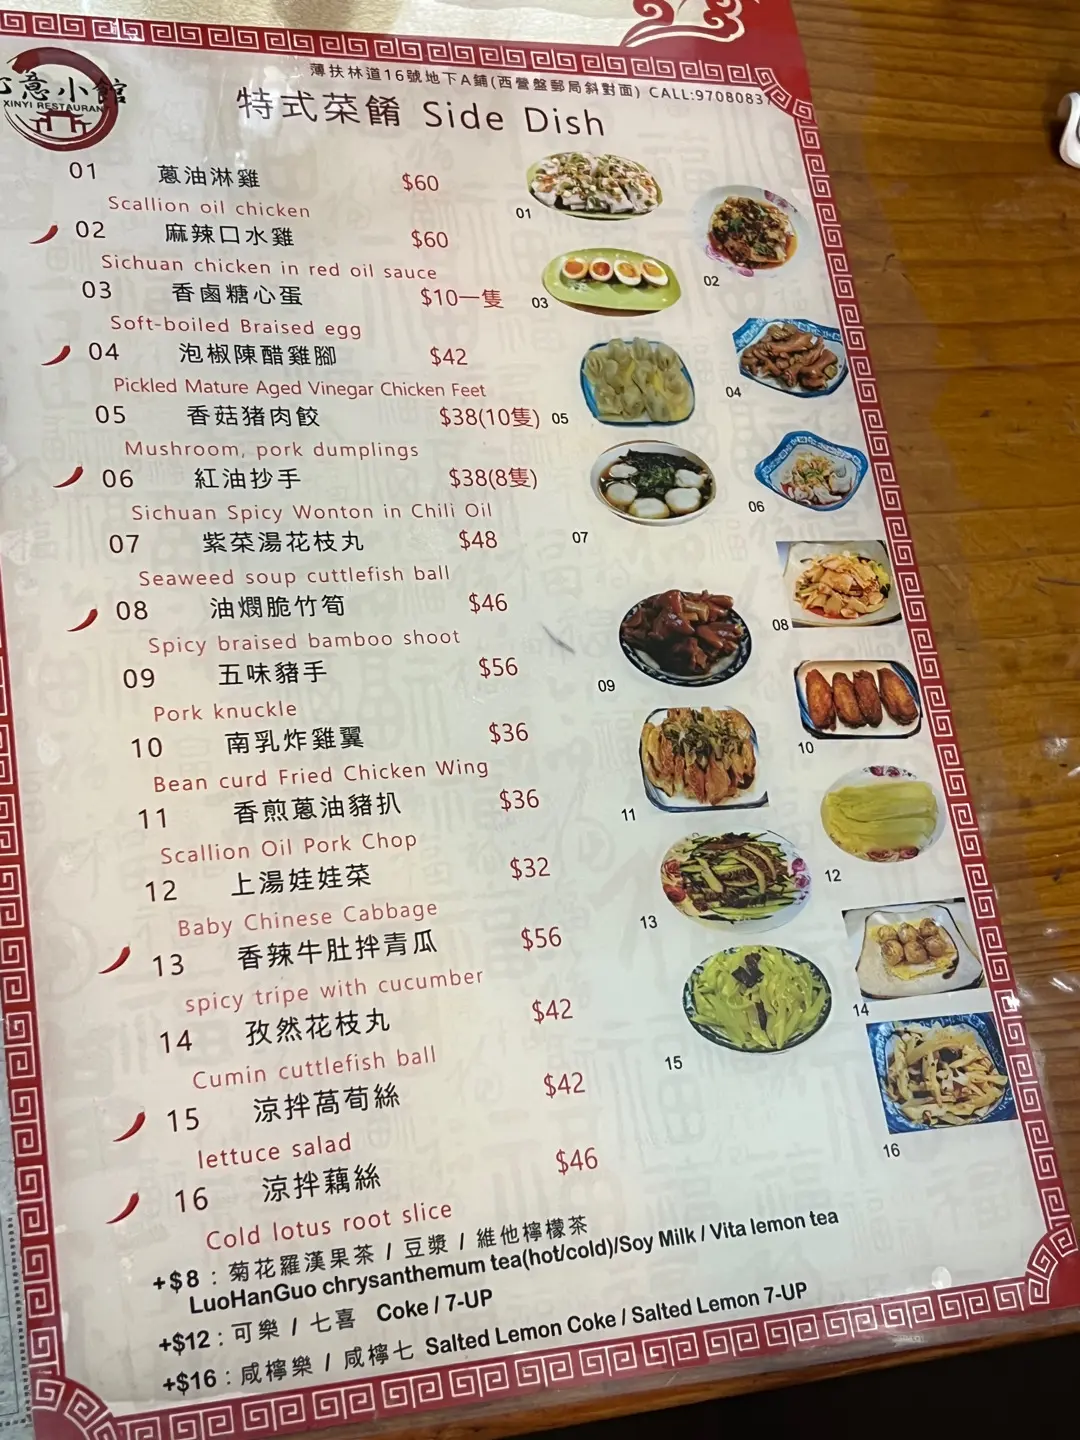 意小館
XINYI RESTAURANT
薄扶林道16號地下A鋪(西營盤郵局斜對面) CALL:9708083
特式菜餚 Side Dish
01 蔥油淋雞 $60
Scallion oil chicken
02 麻辣口水雞 $60
Sichuan chicken in red oil sauce
03 香鹵糖心蛋 $10一隻
Soft-boiled Braised egg
04 泡椒陳醋雞腳 $42
Pickled Mature Aged Vinegar Chicken Feet
05 香菇猪肉餃 $38(10隻)
Mushroom, pork dumplings
06 紅油抄手 $38(8隻)
Sichuan Spicy Wonton in Chili Oil
07 紫菜湯花枝丸 $48
Seaweed soup cuttlefish ball
08 油燜脆竹筍 $46
Spicy braised bamboo shoot
09 五味豬手 $56
Pork knuckle
10 南乳炸雞翼 $36
Bean curd Fried Chicken Wing
11 香煎蔥油豬扒 $36
Scallion Oil Pork Chop
12 上湯娃娃菜 $32
Baby Chinese Cabbage
13 香辣牛肚拌青瓜 $56
spicy tripe with cucumber
14 孜然花枝丸 $42
Cumin cuttlefish ball
15 涼拌萵荀絲 $42
lettuce salad
16 涼拌藕絲 $46
Cold lotus root slice
+$8 : 菊花羅漢果茶 / 豆漿 / 維他檸檬茶
LuoHanGuo chrysanthemum tea(hot/cold)/Soy Milk / Vita lemon tea
+$12 : 可樂 / 七喜 Coke / 7-UP
+$16 : 咸檸樂 / 咸檸七 Salted Lemon Coke / Salted Lemon 7-UP
01
02
03
04
05
06
07
08
09
10
11
12
13
14
15
16